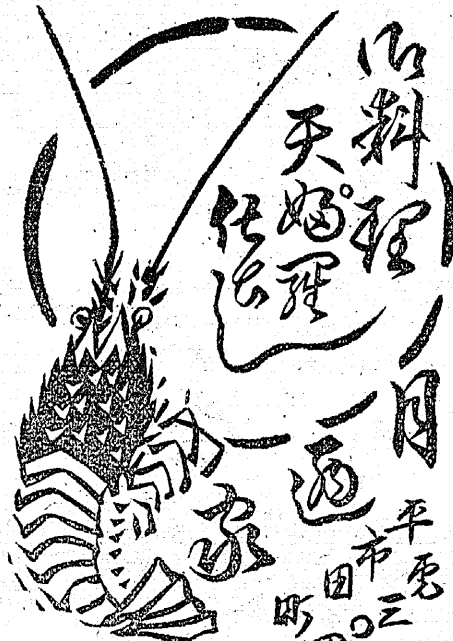 御料理
天婦羅
仕出し
月廼家
平市田町
電三〇